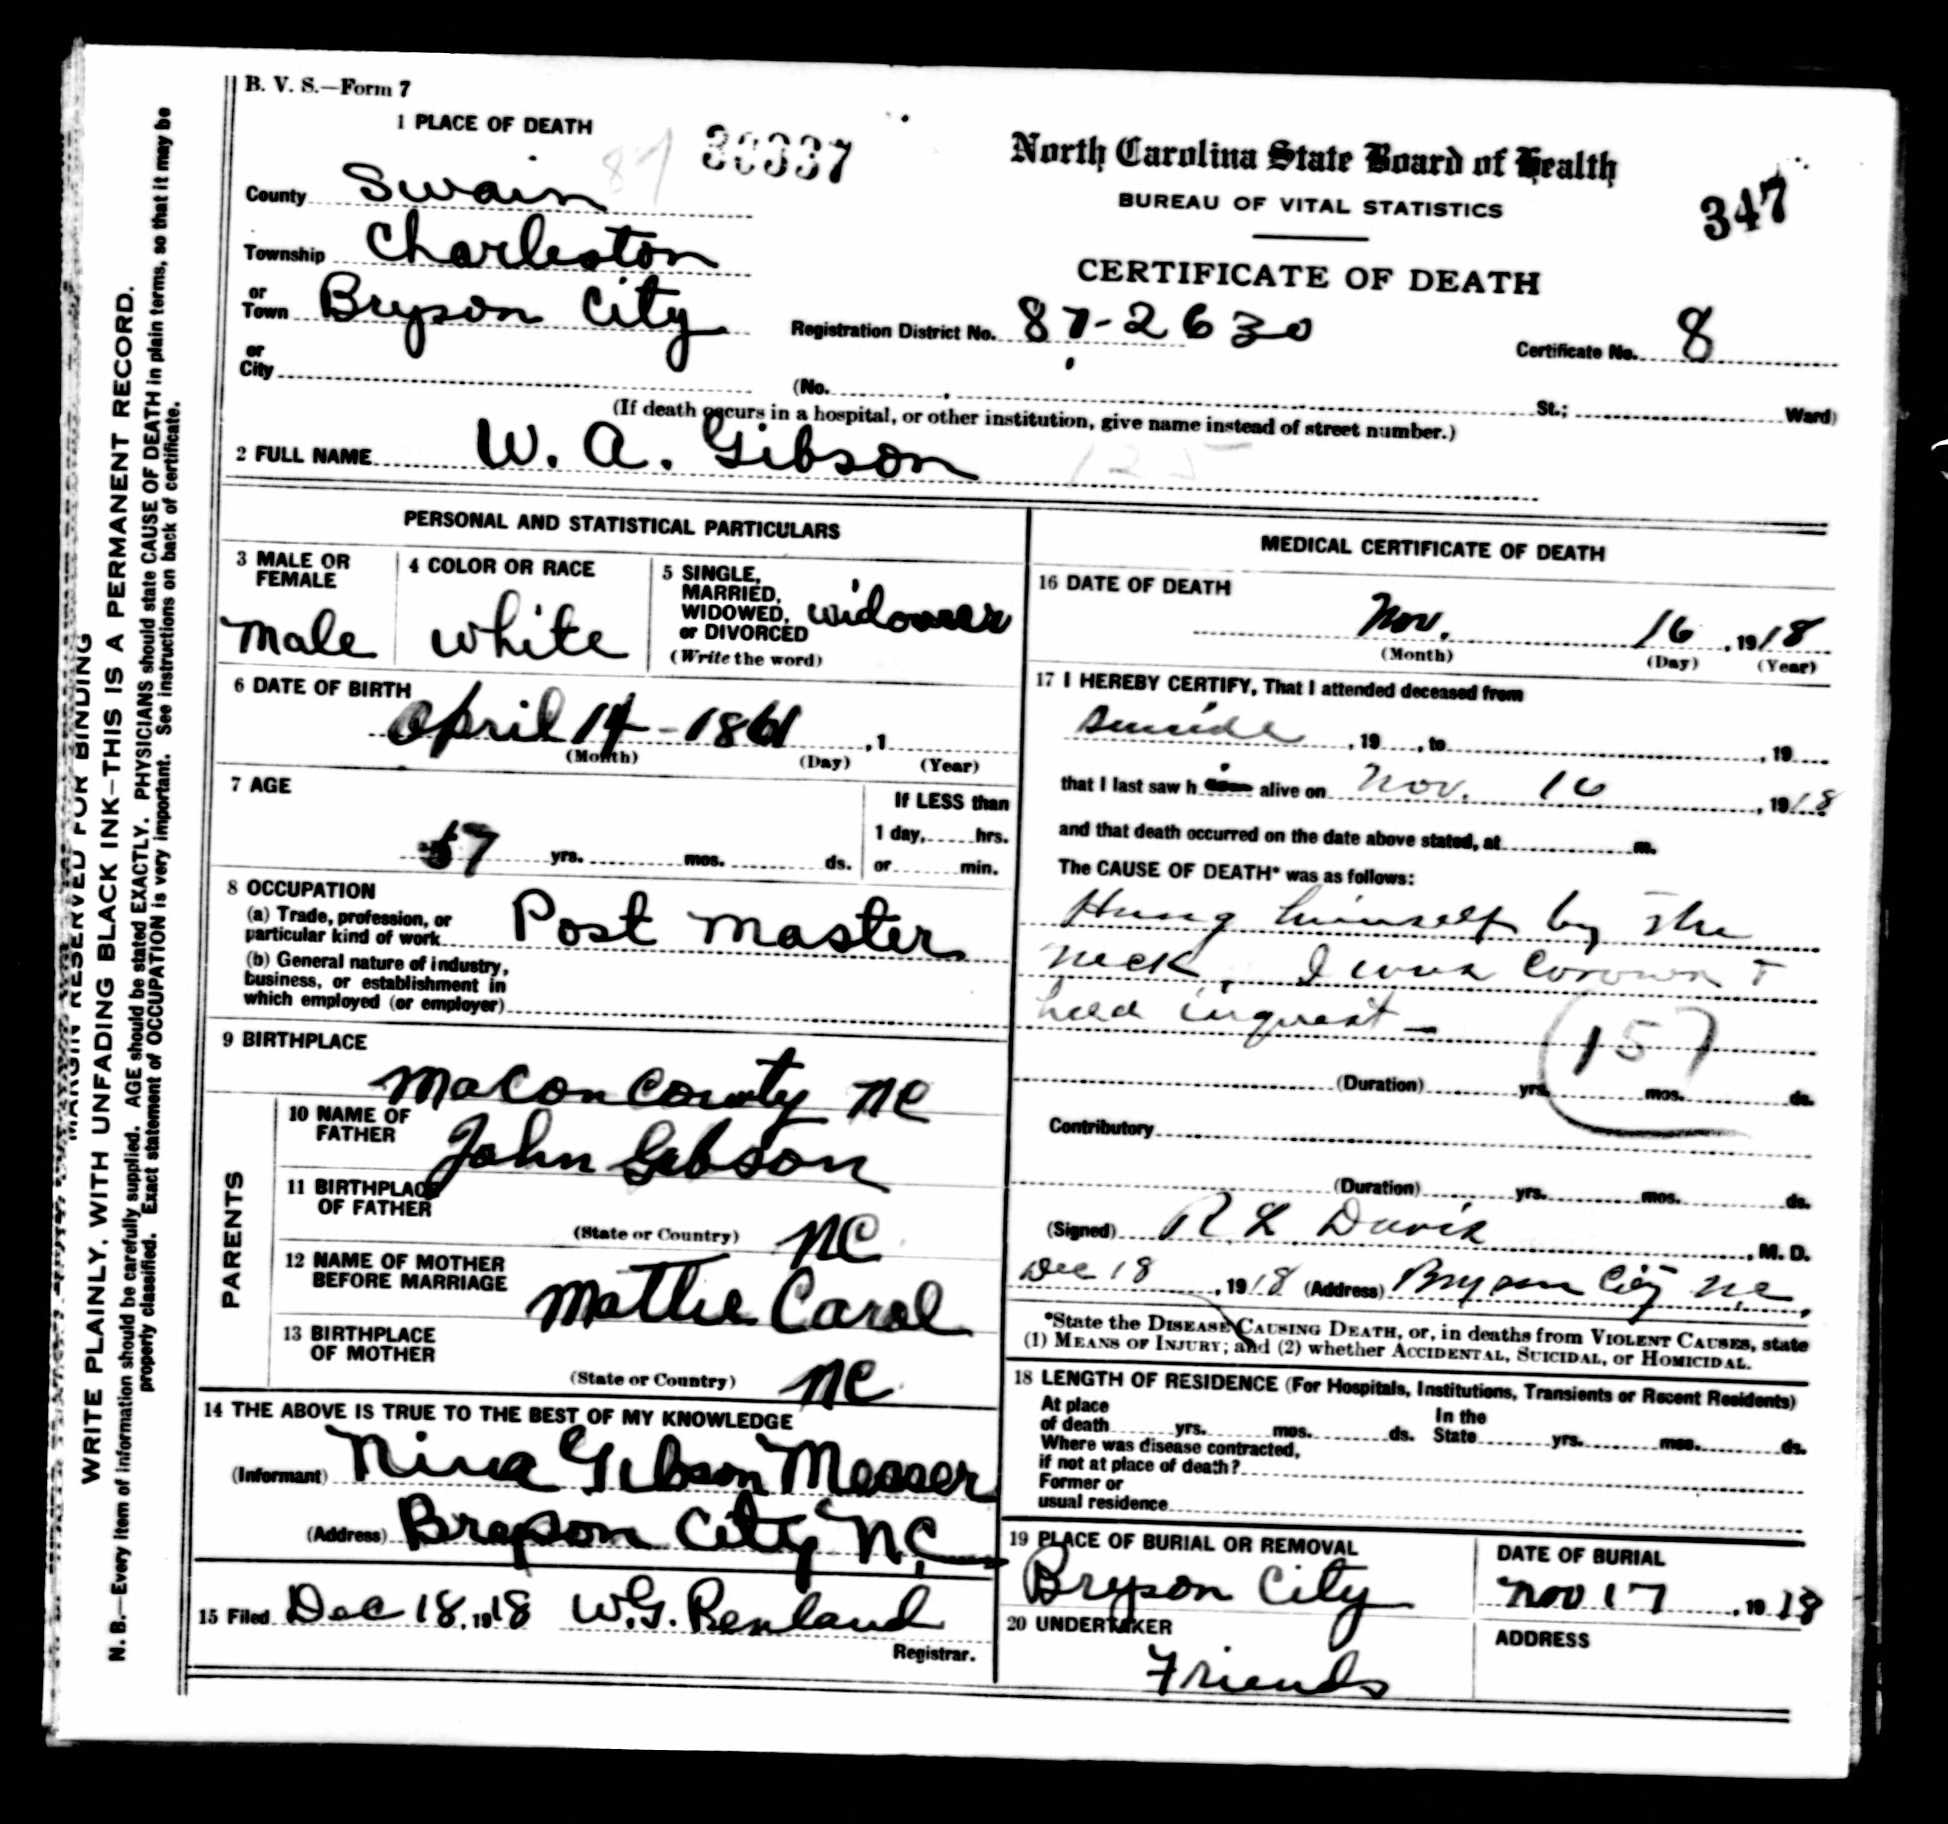 B. V. S.—Form 7
1 PLACE OF DEATH
87
North Carolina State Board of Health
BUREAU OF VITAL STATISTICS
347
County Swain
Township Charleston
CERTIFICATE OF DEATH
or Town Bryson City
Registration District No. 87-2630
Certificate No. 8
or City
(No. , St.; Ward)
(If death occurs in a hospital, or other institution, give name instead of street number.)
2 FULL NAME W. A. Gibson
125
PERSONAL AND STATISTICAL PARTICULARS
3 MALE OR FEMALE
male
4 COLOR OR RACE
white
5 SINGLE, MARRIED, WIDOWED, or DIVORCED
(Write the word)
widower
6 DATE OF BIRTH
April 14-1861 , 1
(Month) (Day) (Year)
7 AGE
57 yrs. mos. ds.
If LESS than
1 day, hrs.
or min.
8 OCCUPATION
(a) Trade, profession, or
particular kind of work Post master
(b) General nature of industry,
business, or establishment in
which employed (or employer)
9 BIRTHPLACE
Macon County NC
PARENTS
10 NAME OF FATHER
John Gibson
11 BIRTHPLACE OF FATHER
(State or Country) NC
12 NAME OF MOTHER BEFORE MARRIAGE
Mattie Carol
13 BIRTHPLACE OF MOTHER
(State or Country) NC
14 THE ABOVE IS TRUE TO THE BEST OF MY KNOWLEDGE
(Informant) Nina Gibson Messer
(Address) Bryson City N.C.
15 Filed Dec 18, 1918 W.G.
Registrar.
MEDICAL CERTIFICATE OF DEATH
16 DATE OF DEATH
Nov. 16 , 1918
(Month) (Day) (Year)
17 I HEREBY CERTIFY, That I attended deceased from
Suicide , 19 , to , 19
that I last saw him alive on Nov. 16 , 1918
and that death occurred on the date above stated, at m.
The CAUSE OF DEATH* was as follows:
Hung himself by the
neck. I was
held inquest —
157
(Duration) yrs. mos. ds.
Contributory
(Duration) yrs. mos. ds.
(Signed) R L Davis , M. D.
Dec 18 , 1918 (Address) Bryson City N.C.
*State the DISEASE CAUSING DEATH, or, in deaths from VIOLENT CAUSES, state
(1) MEANS OF INJURY; and (2) whether ACCIDENTAL, SUICIDAL, or HOMICIDAL.
18 LENGTH OF RESIDENCE (For Hospitals, Institutions, Transients or Recent Residents)
At place of death yrs. mos. ds. In the State yrs. mos. ds.
Where was disease contracted,
if not at place of death?
Former or
usual residence
19 PLACE OF BURIAL OR REMOVAL
Bryson City
DATE OF BURIAL
Nov 17 , 1918
20 UNDERTAKER
Friends
ADDRESS
MARGIN RESERVED FOR BINDING
WRITE PLAINLY, WITH UNFADING BLACK INK—THIS IS A PERMANENT RECORD.
N. B.—Every item of information should be carefully supplied. AGE should be stated EXACTLY. PHYSICIANS should state CAUSE OF DEATH in plain terms, so that it may be
properly classified. Exact statement of OCCUPATION is very important. See instructions on back of certificate.